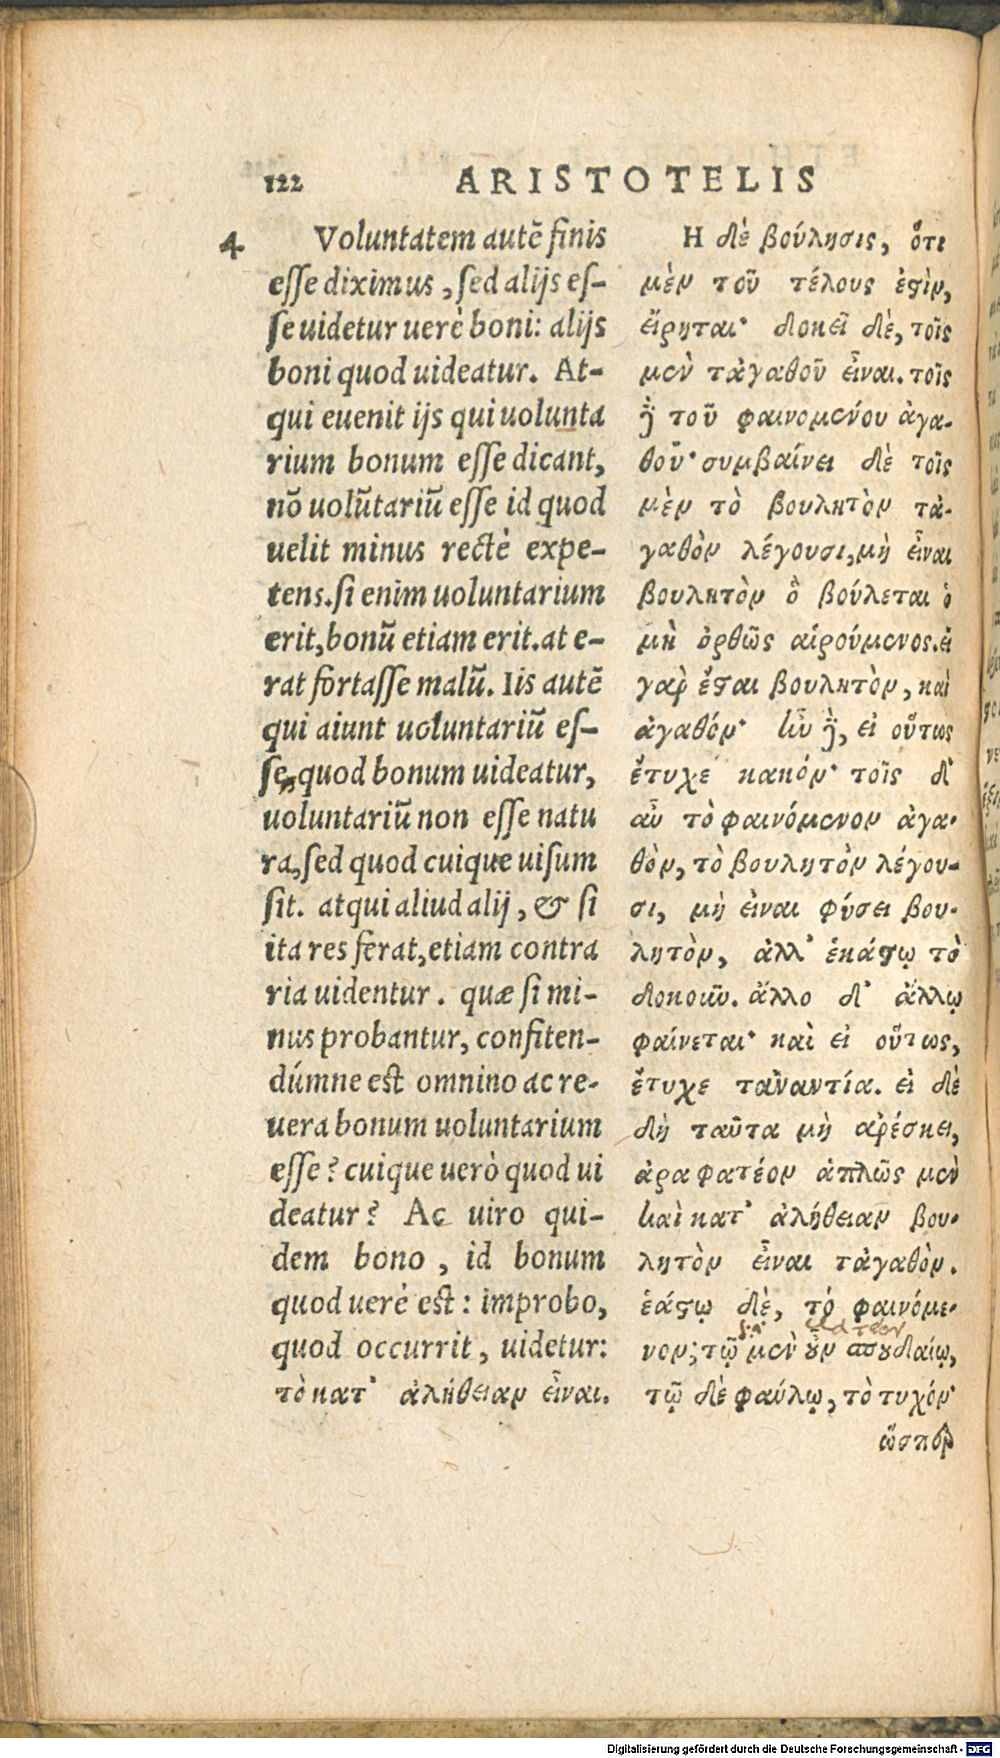 122 ARISTOTELIS
4 Voluntatem autē finis
esse diximus, sed alijs es-
se uidetur uerè boni: alijs
boni quod uideatur. At-
qui euenit ijs qui uolunta
rium bonum esse dicant,
nō uolūtariū esse id quod
uelit minus rectè expe-
tens. si enim uoluntarium
erit, bonū etiam erit. at e-
rat fortasse malū. Iis autē
qui aiunt uoluntariū es-
se, quod bonum uideatur,
uoluntariū non esse natu
ra, sed quod cuique uisum
sit. atqui aliud alij, & si
ita res ferat, etiam contra
ria uidentur. quæ si mi-
nus probantur, confiten-
dúmne est omnino ac re-
uera bonum uoluntarium
esse? cuique uerò quod ui
deatur? Ac uiro qui-
dem bono, id bonum
quod uerè est: improbo,
quod occurrit, uidetur:
Η δὲ βούλησις, ὅτι
μὲν τοῦ τέλους ἐστὶν,
εἴρηται· δοκεῖ δὲ, τοῖς
μὲν τἀγαθοῦ εἶναι. τοῖς
δὲ τοῦ φαινομένου ἀγα-
θοῦ· συμβαίνει δὲ τοῖς
μὲν τὸ βουλητὸν τἀ-
γαθὸν λέγουσι, μὴ εἶναι
βουλητὸν ὃ βούλεται ὁ
μὴ ὀρθῶς αἱρούμενος. εἰ
γὰρ ἔσται βουλητὸν, καὶ
ἀγαθόν· ἦν δὲ, εἰ οὕτως
ἔτυχε κακόν· τοῖς δ'
αὖ τὸ φαινόμενον ἀγα-
θὸν, τὸ βουλητὸν λέγου-
σι, μὴ εἶναι φύσει βου-
λητὸν, ἀλλ' ἑκάστῳ τὸ
δοκοῦν. ἄλλο δ' ἄλλῳ
φαίνεται· καὶ εἰ οὕτως,
ἔτυχε τἀναντία. εἰ δὲ
δὴ ταῦτα μὴ ἀρέσκει,
ἆρα φατέον ἁπλῶς μὲν
καὶ κατ' ἀλήθειαν βου-
λητὸν εἶναι τἀγαθὸν.
ἑάστῳ δὲ, τὸ φαινόμε-
νον; τῷ μὲν οὖν σπουδαίῳ,
τὸ κατ' ἀλήθειαν εἶναι. τῷ δὲ φαύλῳ, τὸ τυχόν·
ὥσπερ
Digitalisierung gefördert durch die Deutsche Forschungsgemeinschaft - DFG